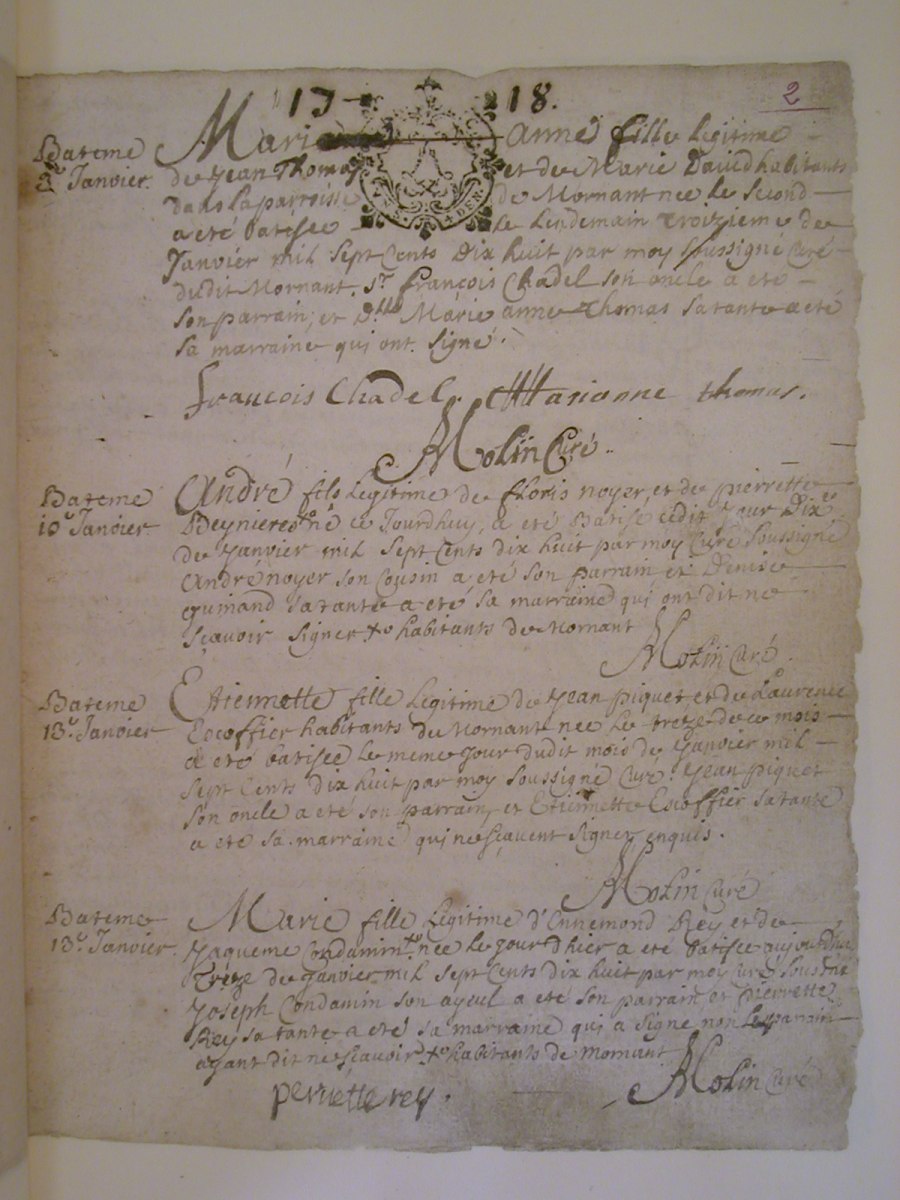 17 18.
2
Bateme
3e Janvier.
Marie anne fille legitime
de Jean Thomas et de Marie David habitants
dans la parroisse de Mornant née le second
a eté batisée le lendemain troizieme de
Janvier mil sept cents dix huit par moy soussigné Curé
dudit Mornant. Sr françois Chadel son oncle a eté
son parrain, et Dlle Marie anne Thomas sa tante a eté
sa marraine qui ont signé.
françois Chadel. Marianne thomas.
Molin Curé.
Bateme
10e Janvier
André fils legitime de floris noyer, et de pierrette
Beyniere né ce Jourdhuy, a eté Batisé cedit Jour Dixe
de Janvier mil sept Cents dix huit par moy Curé soussigné
André noyer son Cousin a eté son parrain et Denise
guinand sa tante a eté sa marraine qui ont dit ne
sçavoir signer + habitants de Mornant
Molin Curé.
Bateme
13e Janvier
Etiennette fille legitime de Jean piquet et de Laurence
Escoffier habitants de Mornant née le treze de ce mois
a eté batisée le meme jour dudit mois de Janvier mil
sept Cents dix huit par moy soussigné Curé. Jean piquet
son oncle a eté son parrain, et Etiennette Escoffier sa tante
a eté sa marraine qui ne sçavent signer enquis.
Molin Curé
Bateme
13e Janvier.
Marie fille legitime d'Ennemond Rey et de
Jaqueme Condamin + née le jour d'hier a eté batisée aujourdhui
treze de Janvier mil sept Cents dix huit par moy Curé soussigné
Joseph Condamin son ayeul a eté son parrain et pierrette
Rey sa tante a eté sa marraine qui a signé non le parrain
ayant dit ne sçavoir + habitants de Mornant
perrette rey.
Molin Curé